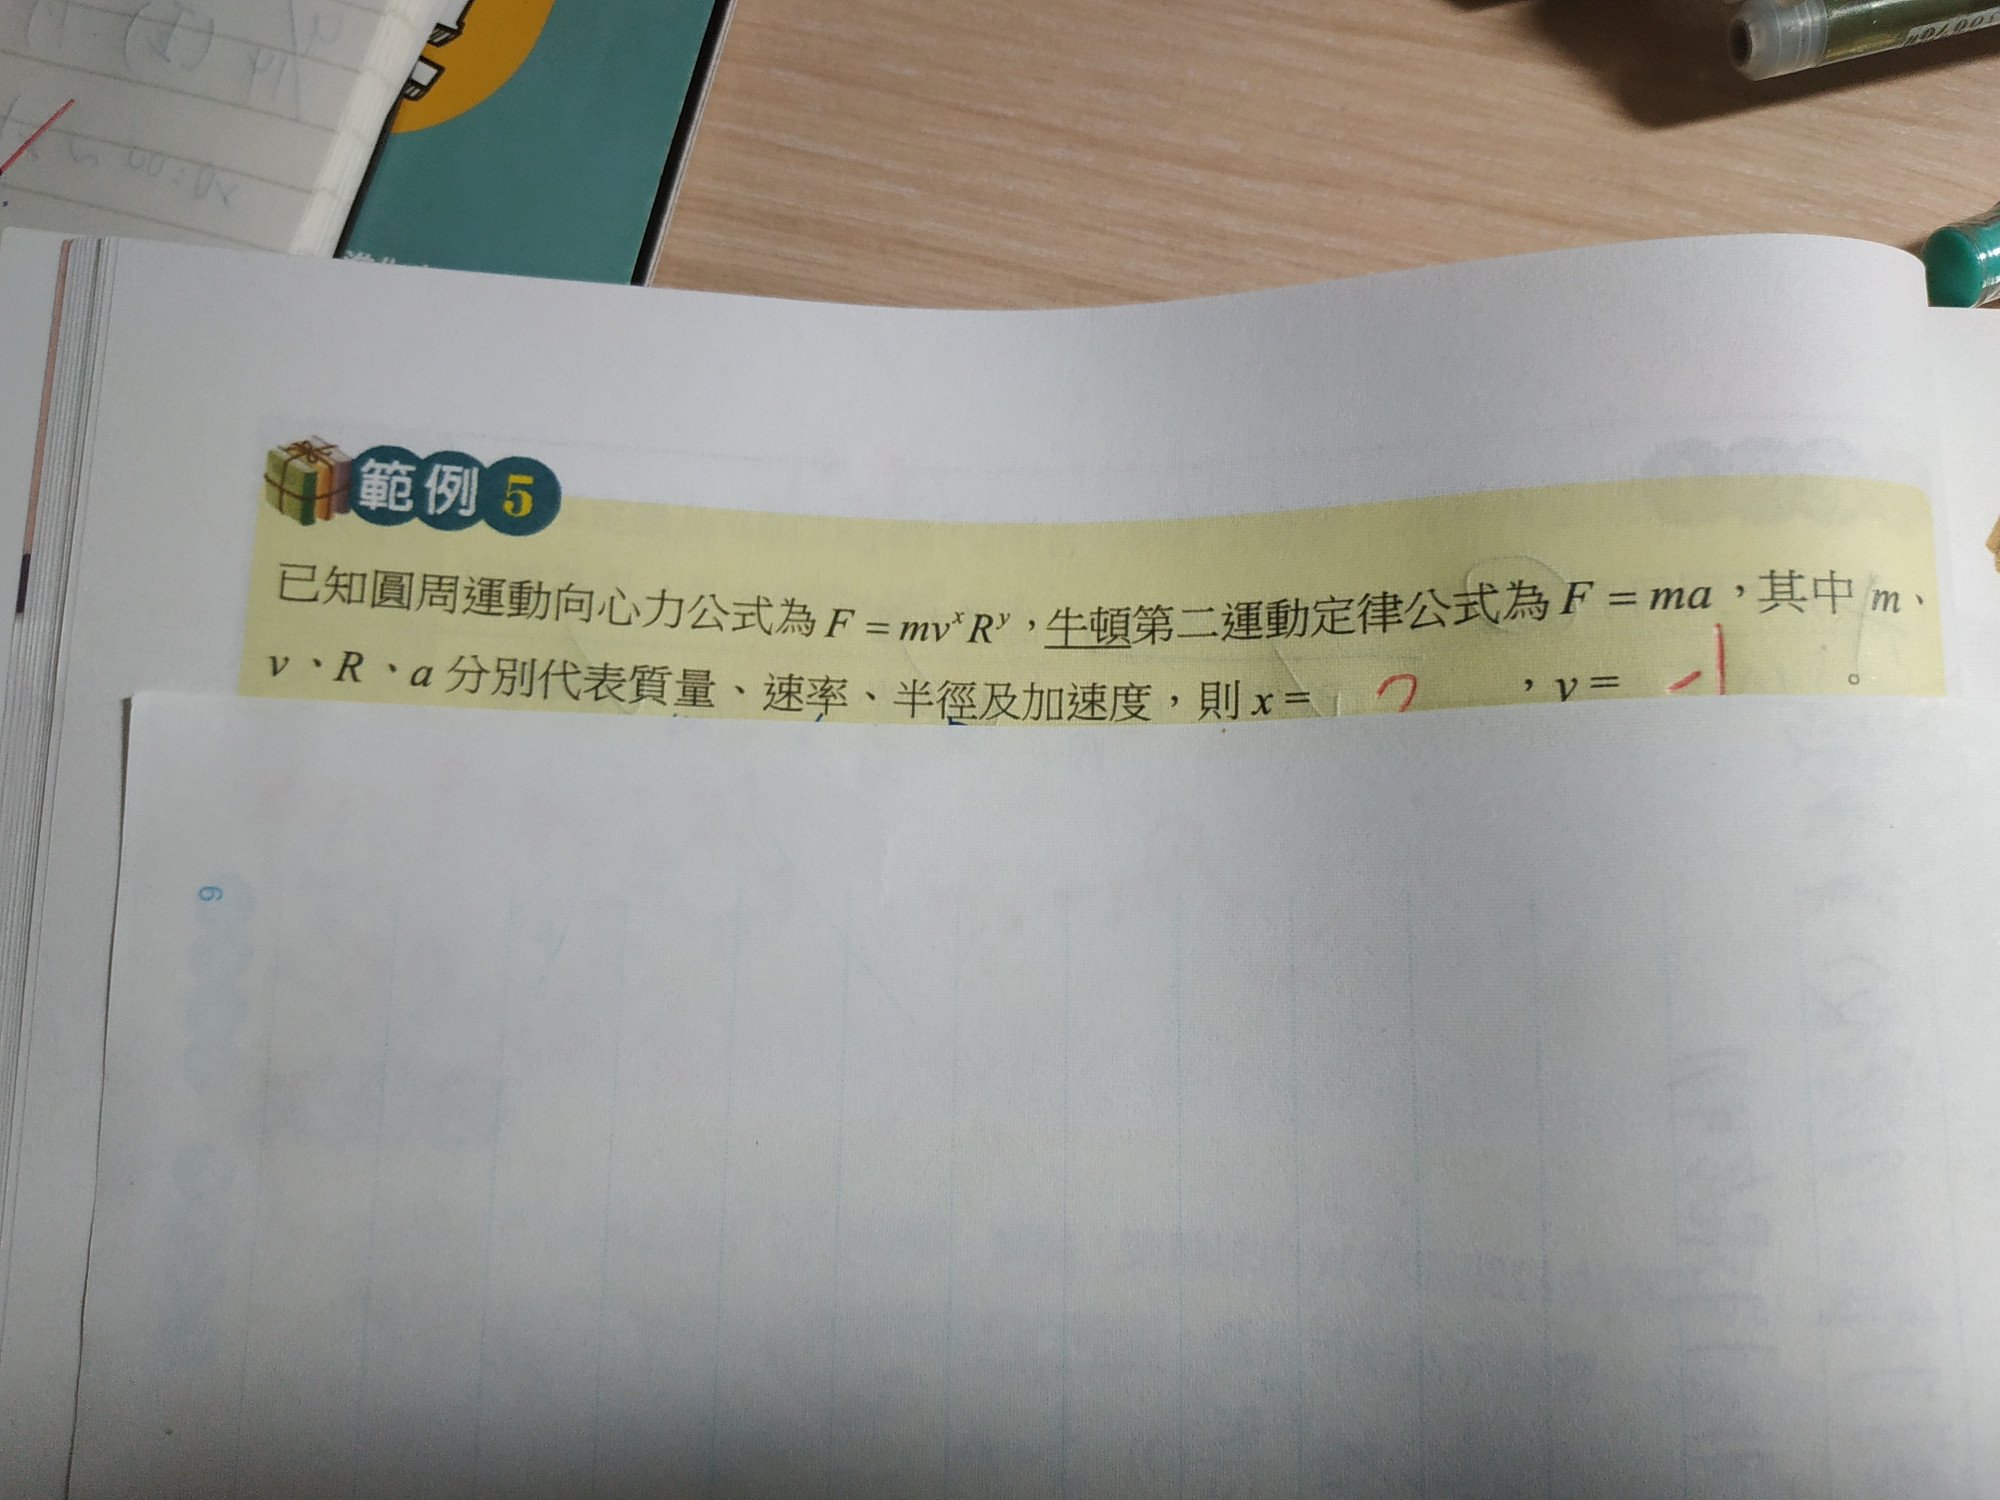 範例 5
已知圓周運動向心力公式為 F = mvˣRʸ，牛頓第二運動定律公式為 F = ma，其中 m、
v、R、a 分別代表質量、速率、半徑及加速度，則 x = 2 ，y = -1 。
6